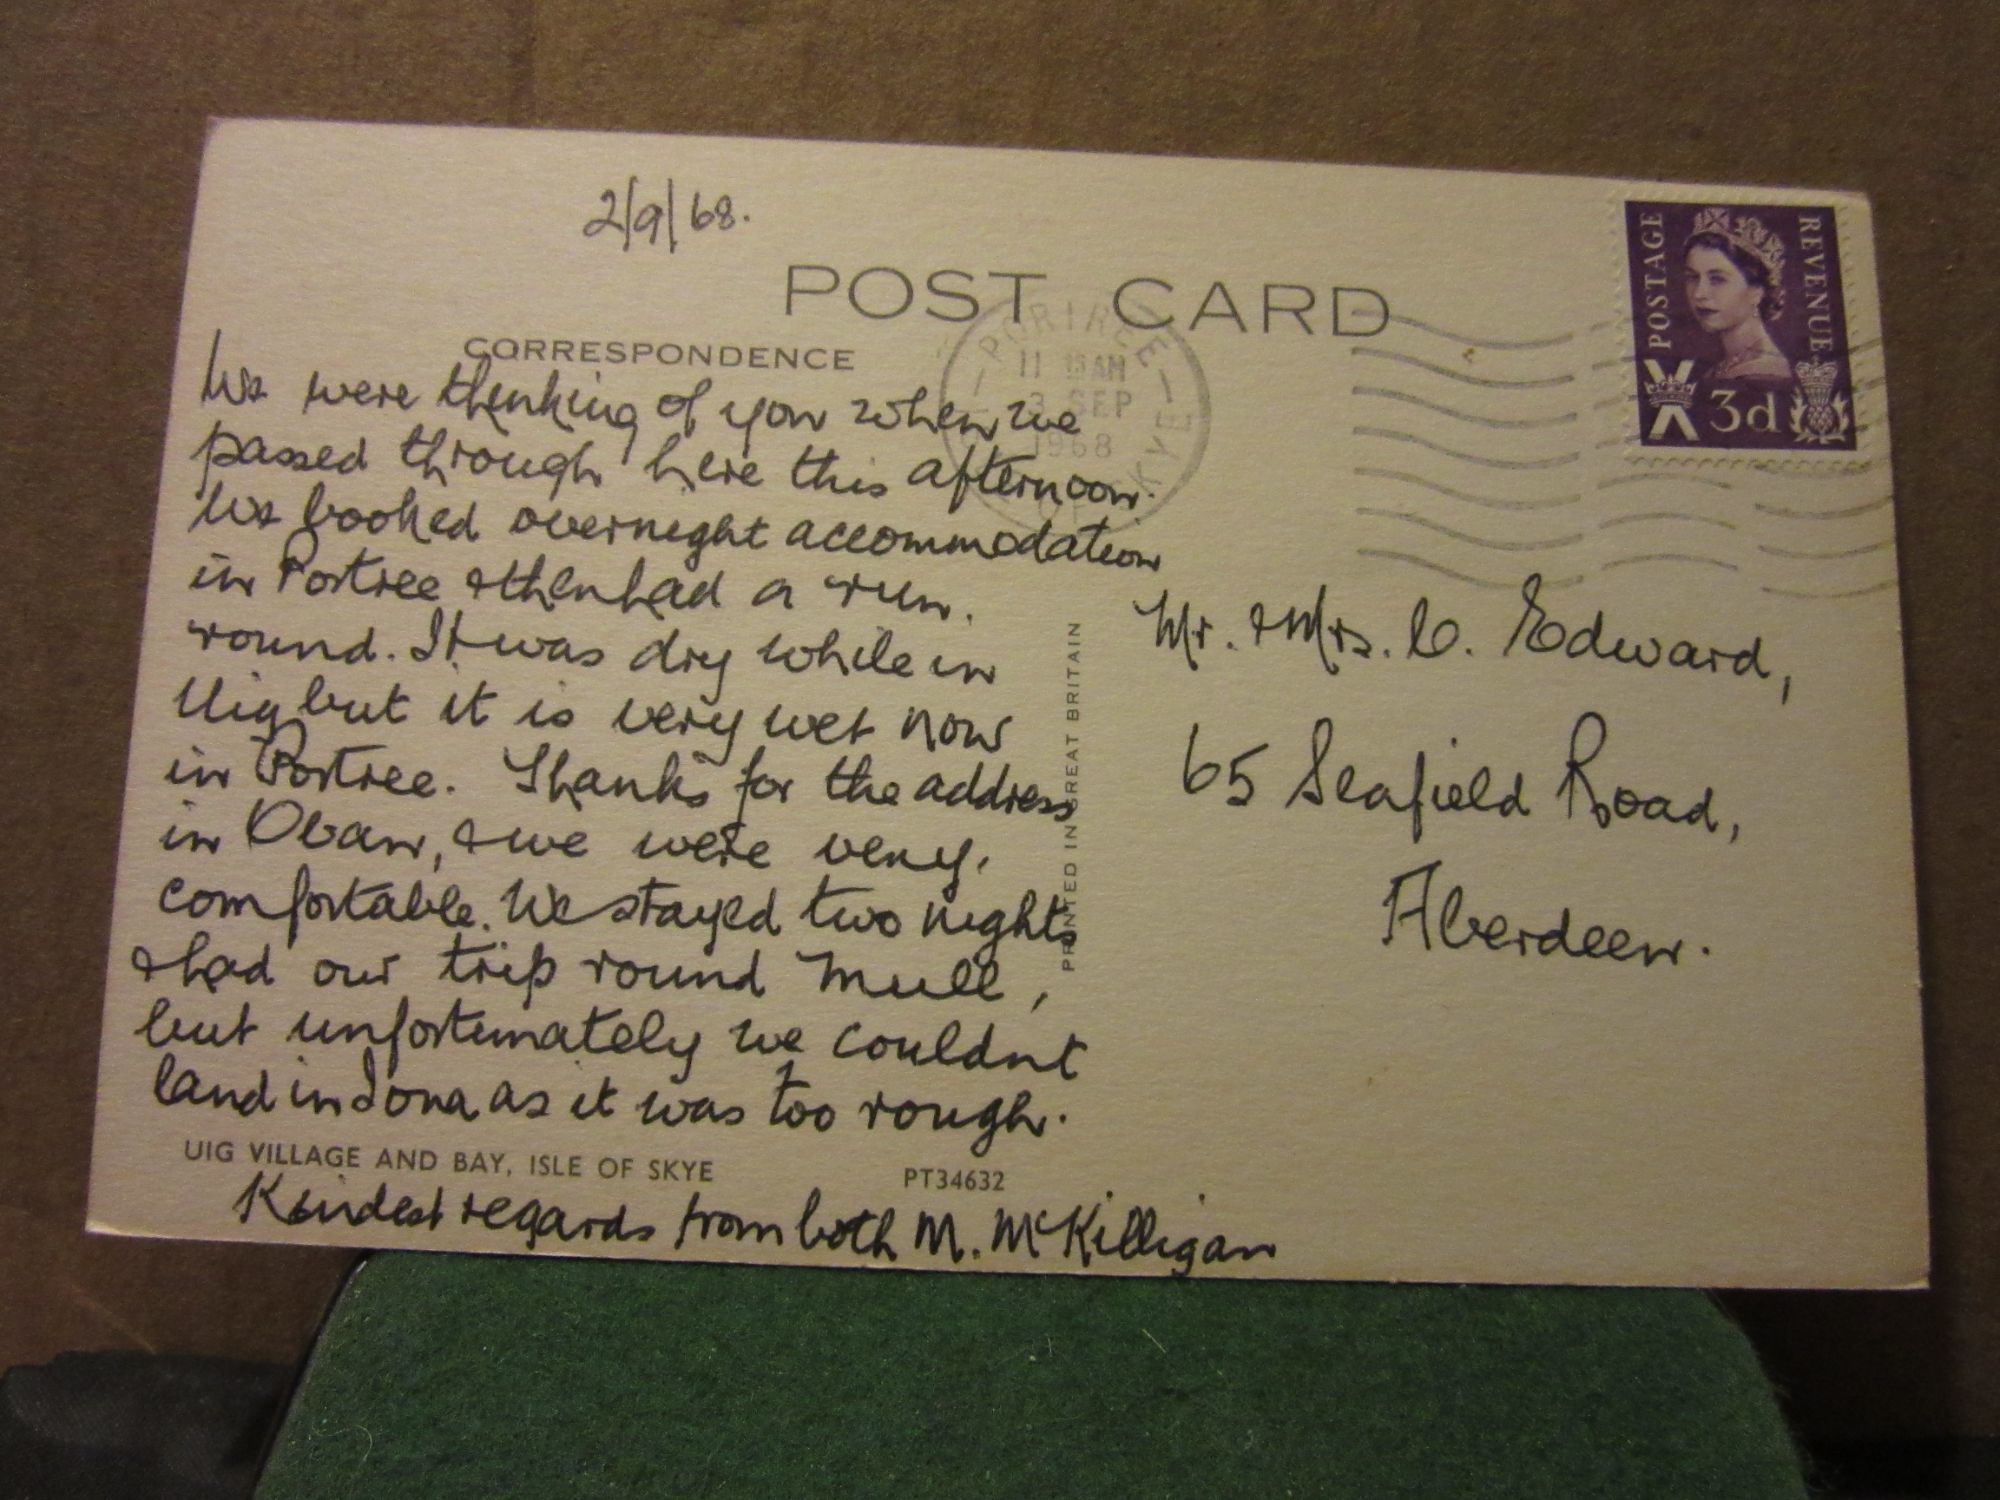 2/9/68.
POST CARD
CORRESPONDENCE
We were thinking of you when we
passed through here this afternoon.
We booked overnight accommodation
in Portree & then had a run
round. It was dry while in
Uig but it is very wet now
in Portree. Thanks for the address
in Oban, & we were very
comfortable. We stayed two nights
& had our trip round Mull,
but unfortunately we couldnt
land in Iona as it was too rough.
UIG VILLAGE AND BAY, ISLE OF SKYE PT34632
Kindest regards from both M. McKilligan
PRINTED IN GREAT BRITAIN
PORTREE
11 15 AM
3 SEP
1968
OF SKYE
POSTAGE
REVENUE
3d
Mr. & Mrs. C. Edward,
65 Seafield Road,
Aberdeen.